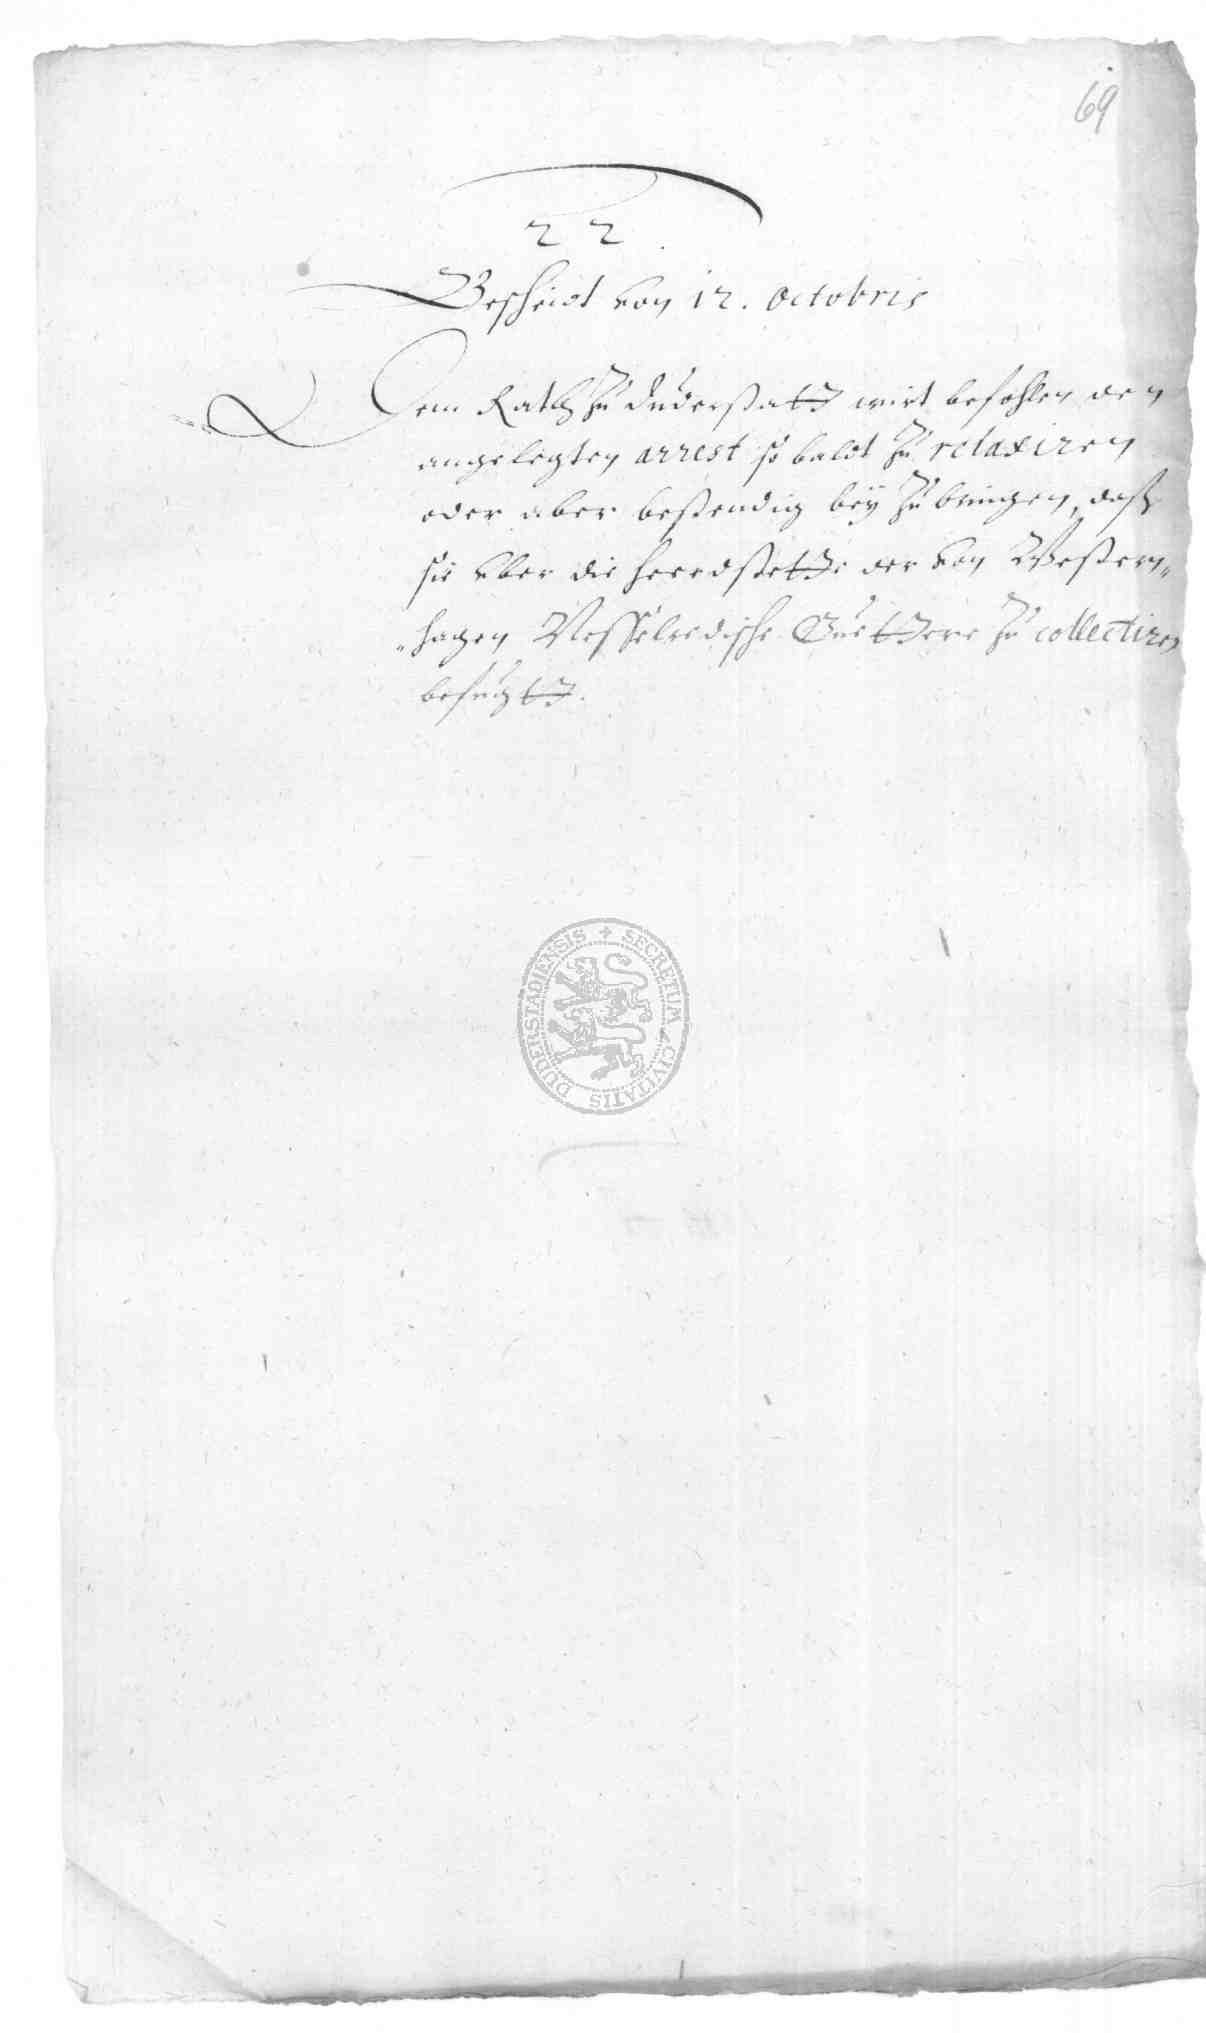 69
22.
Bescheidt von 12. Octobris
Dem Rath zu Duderstatt wirt befohlen den
angelegten arrest so baldt zu relaxiren
oder aber bestendig bey zu bringen, daß
sie vber die heerdstette der von Western„
„hagen Vesselredische Guettere zu collectiren
befugtt.
SECRETUM CIVITATIS DUDERSTADIENSIS